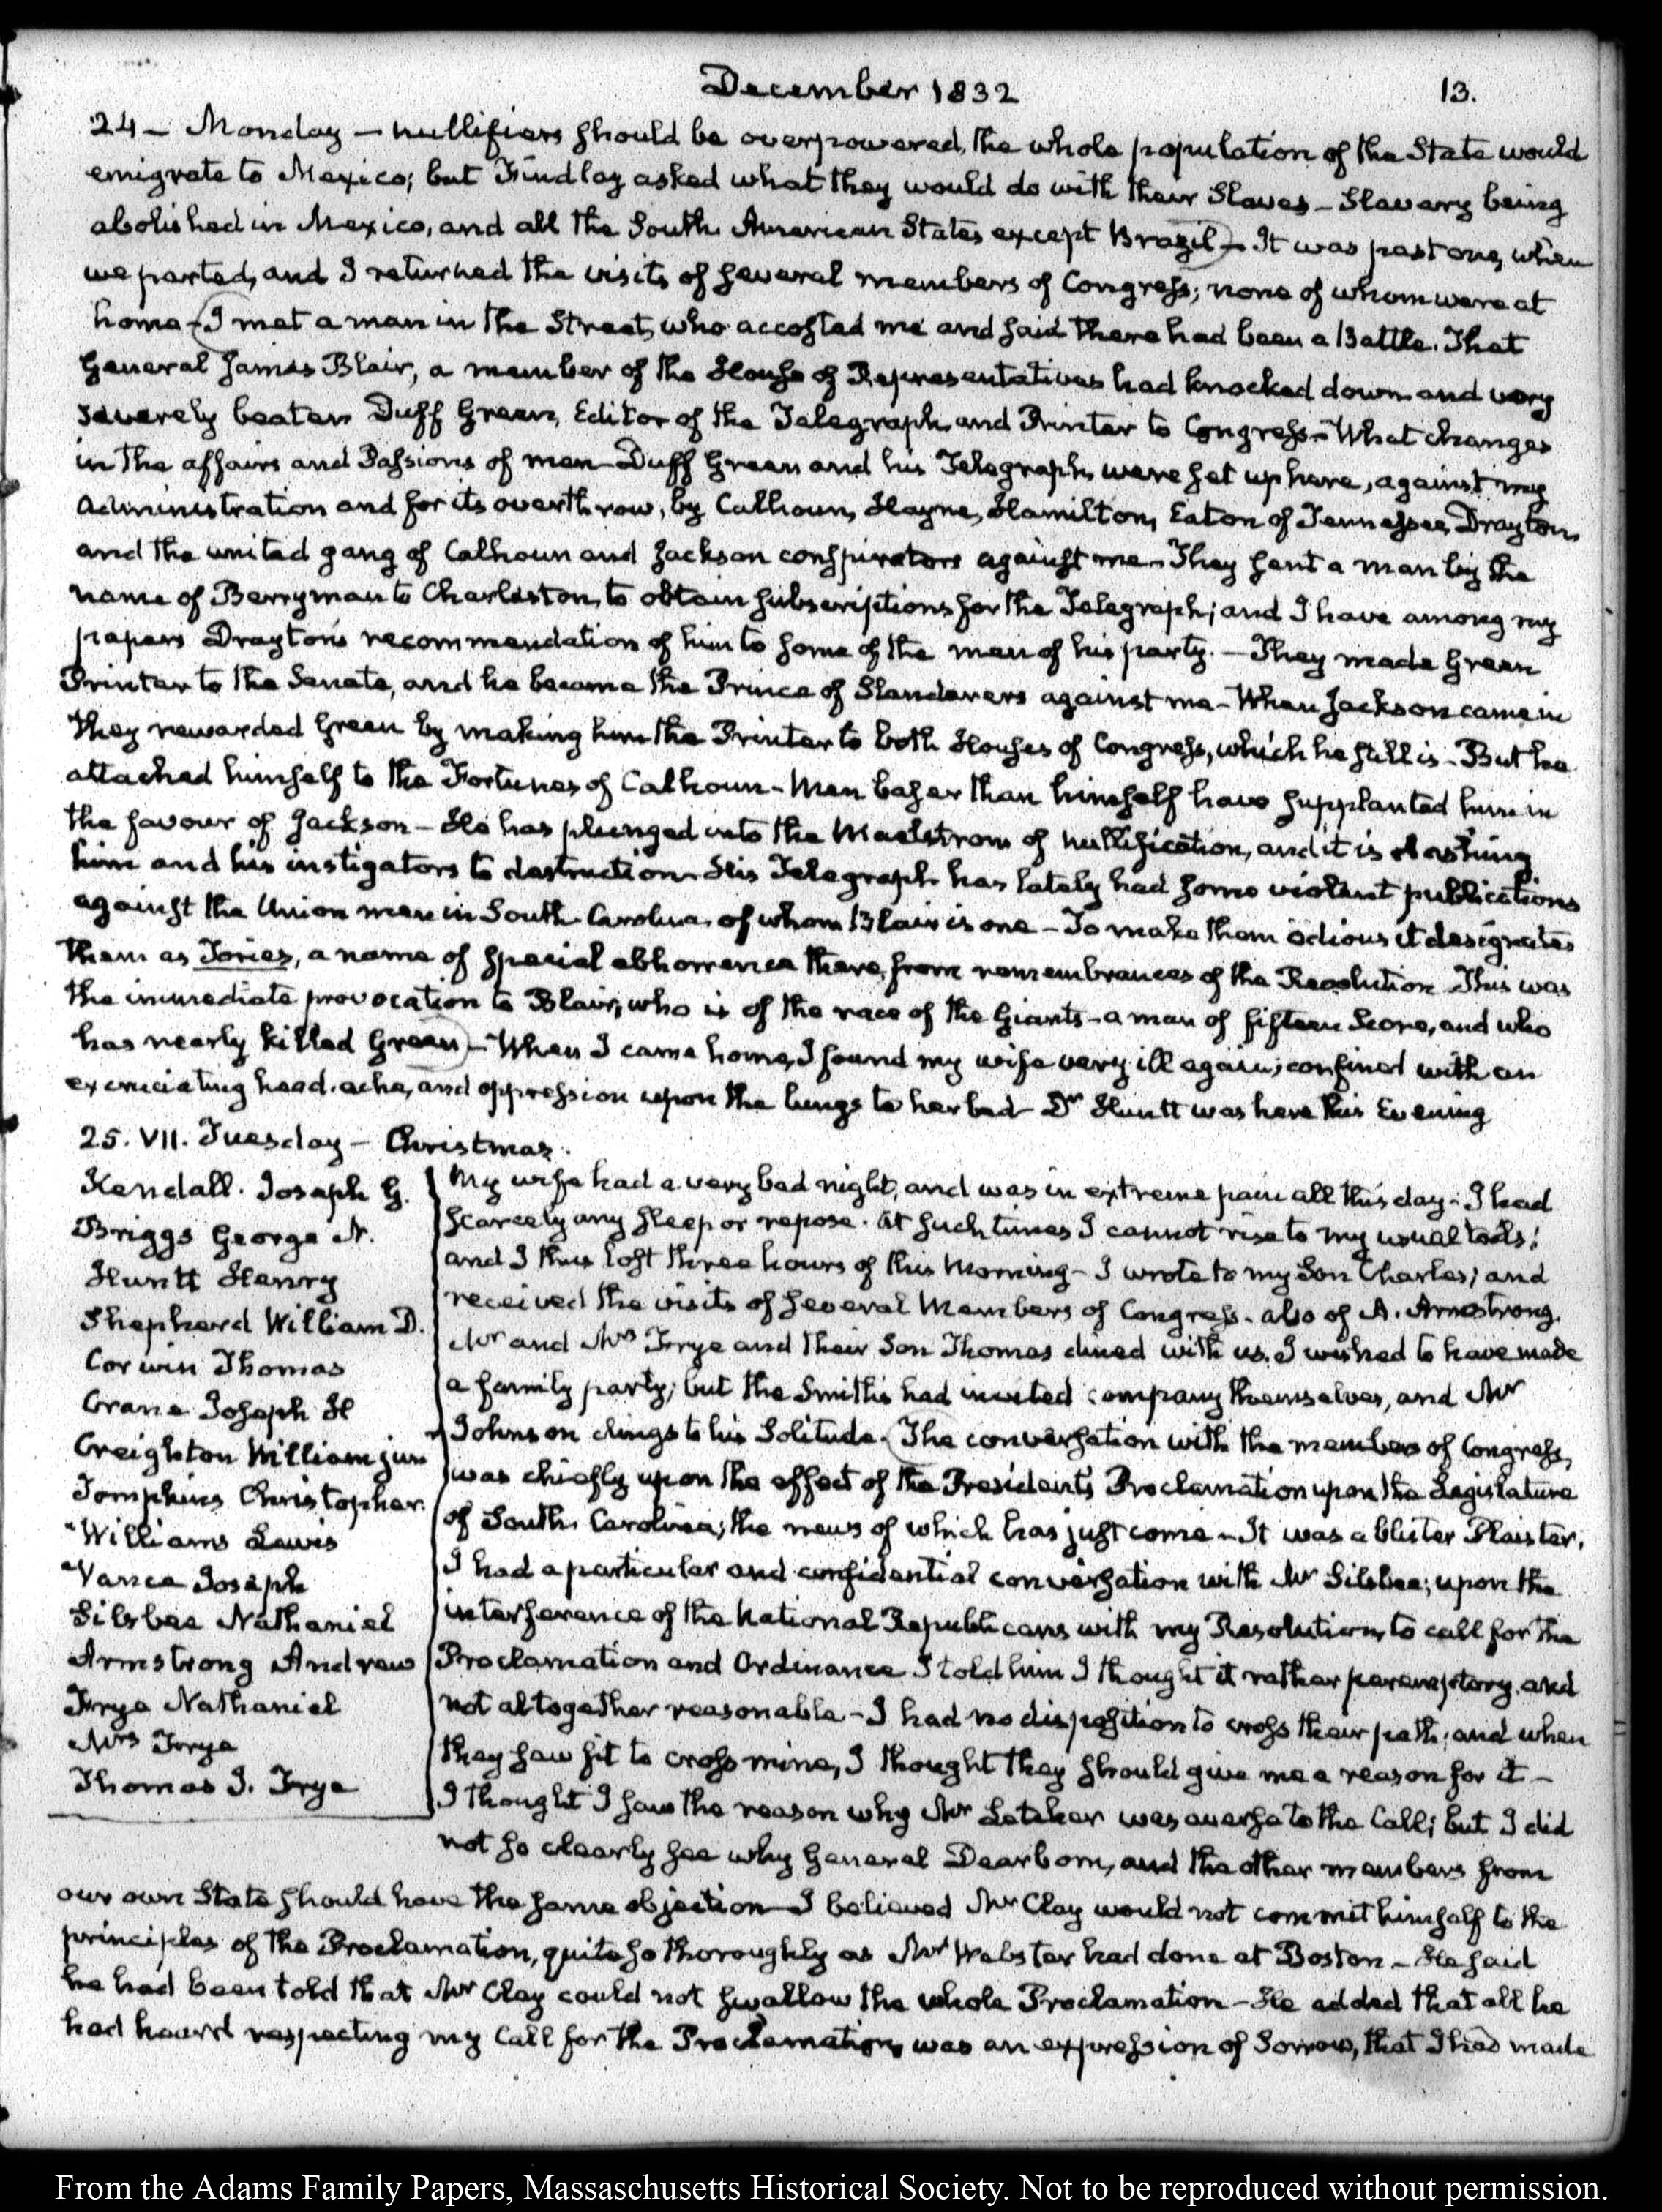 December 1832
13.
24 – Monday – nullifiers should be overpowered, the whole population of the State would
emigrate to Mexico; but Findlay asked what they would do with their Slaves – Slavery being
abolished in Mexico, and all the South American States except Brazil – It was past one, when
we parted, and I returned the visits of several members of Congress; none of whom were at
home – I met a man in the Street, who accosted me and said there had been a Battle. That
General James Blair, a member of the House of Representatives had knocked down and very
severely beaten Duff Green, Editor of the Telegraph, and Printer to Congress – What changes
in the affairs and Passions of men – Duff Green and his Telegraph, were set up here, against my
Administration and for its overthrow, by Calhoun, Hayne, Hamilton, Eaton of Tennessee, Drayton,
and the united gang of Calhoun and Jackson conspirators against me – They sent a man by the
name of Berryman to Charleston, to obtain subscriptions for the Telegraph; and I have among my
papers Drayton's recommendation of him to some of the men of his party. – They made Green
Printer to the Senate, and he became the Prince of Slanderers against me – When Jackson came in
they rewarded Green by making him the Printer to both Houses of Congress, which he still is – But he
attached himself to the Fortunes of Calhoun – Men baser than himself have supplanted him in
the favour of Jackson – He has plunged into the Maelstrom of nullification, and it is dashing
him and his instigators to destruction – His Telegraph has lately had some violent publications
against the Union men in South Carolina, of whom Blair is one – To make them odious it designates
them as Tories, a name of special abhorrence there, from remembrances of the Revolution – This was
the immediate provocation to Blair, who is of the race of the Giants – a man of fifteen Score, and who
has nearly killed Green – When I came home, I found my wife very ill again; confined with an
excruciating head-ache, and oppression upon the lungs to her bed – Dr Huntt was here this Evening
25. VII. Tuesday – Christmas.
Kendall. Joseph G.
Briggs George N.
Huntt Henry
Shepherd William B.
Corwin Thomas
Crane Joseph H
Creighton William jun
Tompkins Christopher
Williams Lewis
Vance Joseph
Silsbee Nathaniel
Armstrong Andrew
Frye Nathaniel
Mrs Frye
Thomas J. Frye
My wife had a very bad night, and was in extreme pain all this day – I had
scarcely any sleep or repose. At such times I cannot rise to my usual tasks;
and I thus lost three hours of this Morning – I wrote to my Son Charles; and
received the visits of several Members of Congress – also of A. Armstrong.
Mr and Mrs Frye and their Son Thomas dined with us. I wished to have made
a family party; but the Smiths had invited company themselves, and Mr
Johnson clings to his Solitude. The conversation with the members of Congress,
was chiefly upon the effect of the President's Proclamation upon the Legislature
of South Carolina; the news of which has just come – It was a blister Plaister.
I had a particular and confidential conversation with Mr Silsbee; upon the
interference of the National Republicans with my Resolution, to call for the
Proclamation and Ordinance – I told him I thought it rather peremptory, and
not altogether reasonable – I had no disposition to cross their path; and when
they saw fit to cross mine, I thought they should give me a reason for it –
I thought I saw the reason why Mr Letcher was averse to the Call; but I did
not so clearly see why General Dearborn, and the other members from
our own State should have the same objection – I believed Mr Clay would not commit himself to the
principles of the Proclamation, quite so thoroughly as Mr Webster had done at Boston – He said
he had been told that Mr Clay could not swallow the whole Proclamation – He added that all he
had heard respecting my Call for the Proclamation, was an expression of Sorrow, that I had made
From the Adams Family Papers, Massachusetts Historical Society. Not to be reproduced without permission.